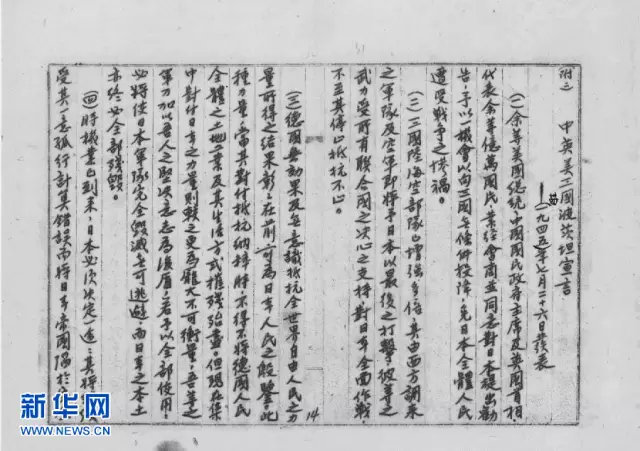 附二
中英美三國波茨坦宣言
——一九四五年七月二十六日發表
(一)余等美國總統、中國國民政府主席及英國首相
代表余等億萬國民,業經會商並同意對日本提出勸
告,予以機會以向三國無條件投降,免日本全體人民
遭受戰爭之慘禍。
(二)三國陸海空部隊已增強多倍,其由西方調來
之軍隊及空軍即將予日本以最後之打擊,彼等之
武力受所有聯合國之決心之支持對日本全面作戰,
不至其停止抵抗不止。
(三)德國無効果及無意識抵抗全世界自由人民之力
量所得之結果彰彰在前,可為日本人民之殷鑒,此
種力量,當其對付抵抗納粹時不得不將德國人民
全體之土地工業及其生活方式摧殘殆盡。但現在集
中對付日本之力量則較之更為龐大不可衡量。吾等之
軍力加以吾人之堅決意志為後盾,若予以全部使用,
必將使日本軍隊完全毀滅無可逃避,而日本之本土
亦終必全部殘毀。
(四)時機業已到來,日本必須決定一途:其將
受其一意孤行計算錯誤而將日本帝國陷於
14
新华网
WWW.NEWS.CN